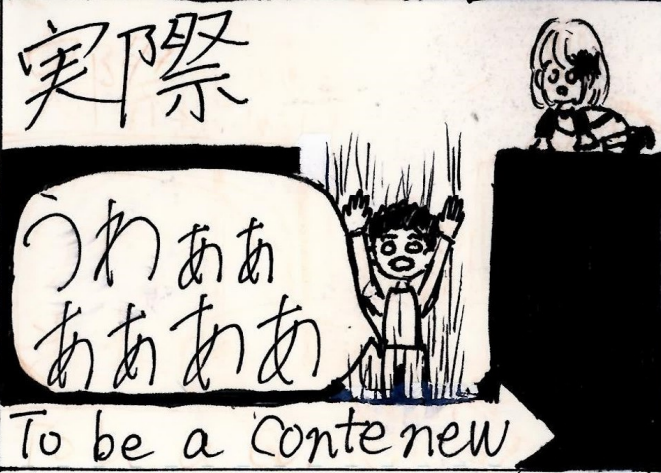 実際
うわぁぁ
ああああ
To be a contenew